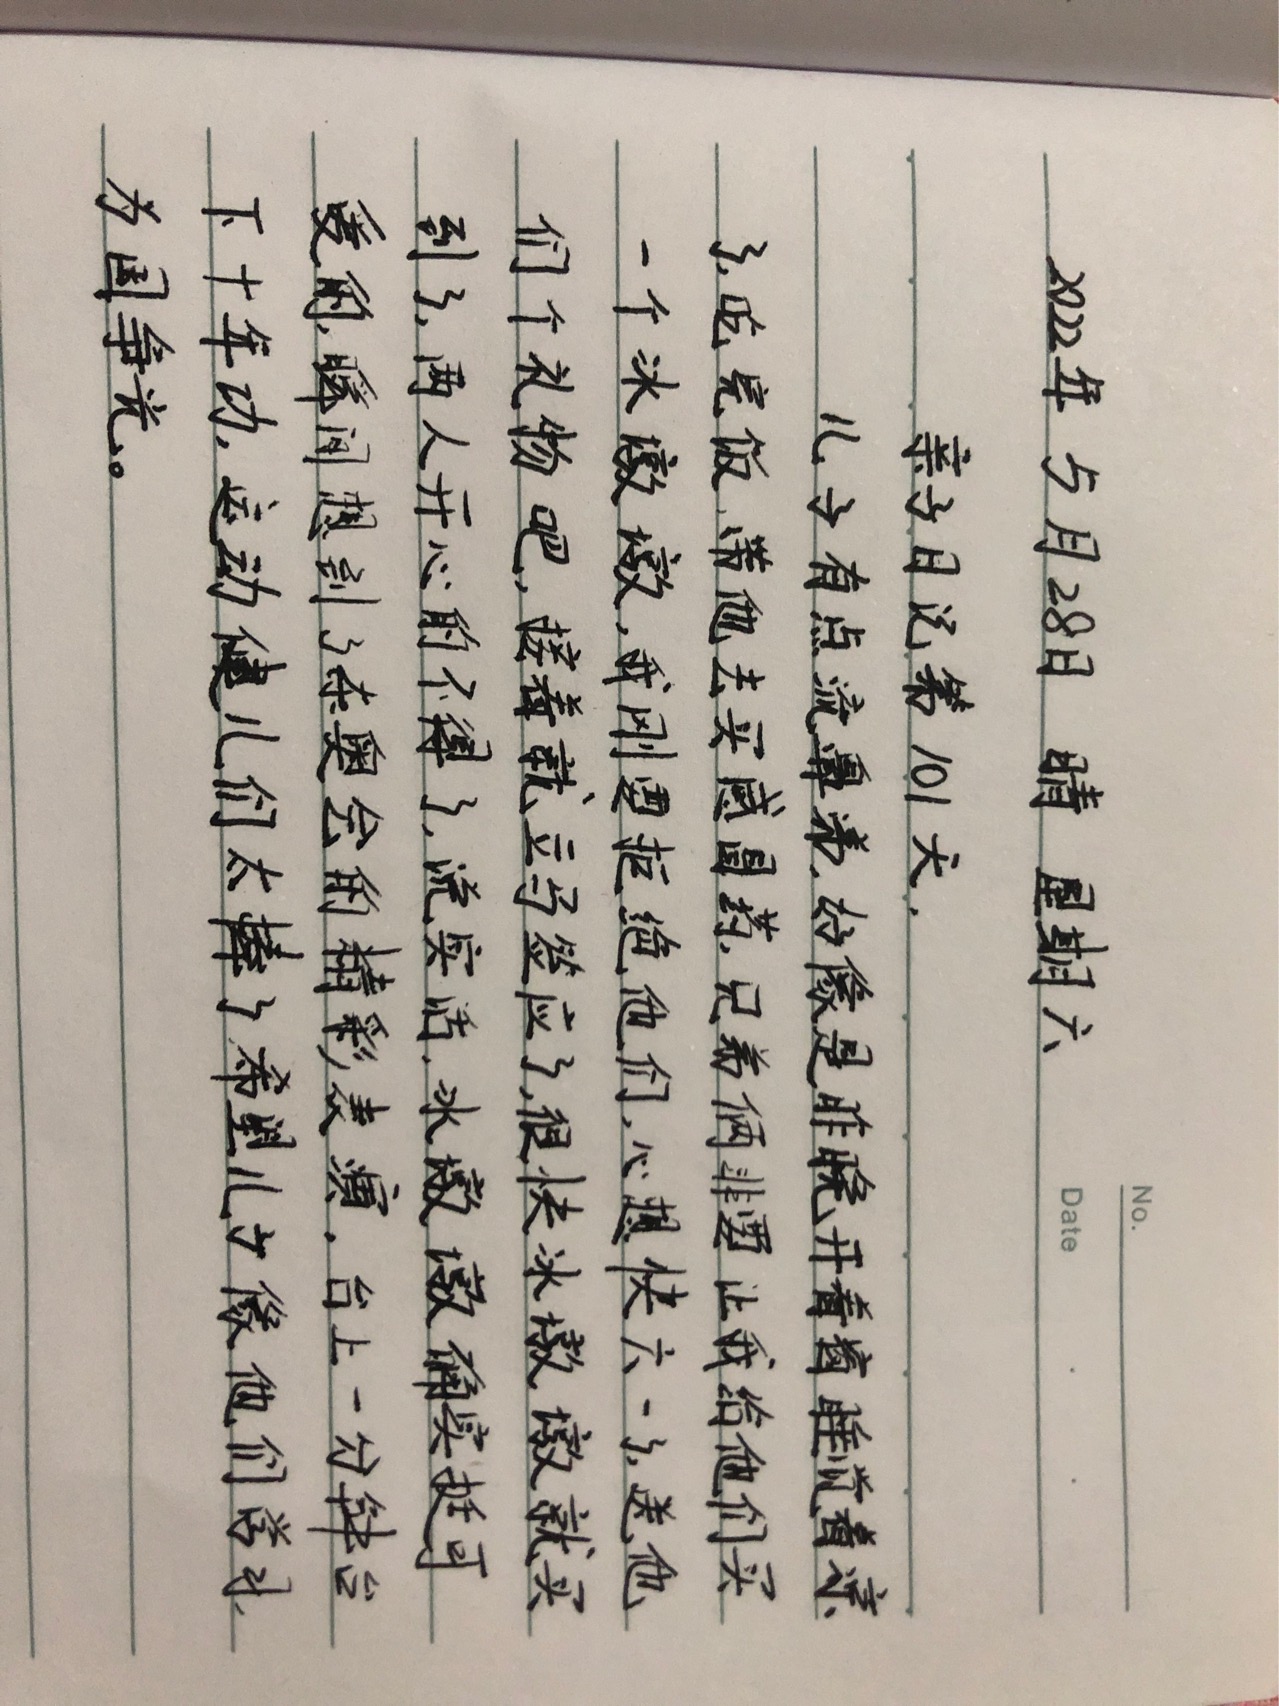 No.
Date
2022年 5月28日 晴 星期六
亲子日记第101天.
儿子有点流鼻涕,好像是昨晚开着窗睡觉着凉
了,吃完饭带他去买感冒药,兄弟俩非要让我给他们买
一个冰墩墩,我刚要拒绝他们,心想快六一了,送他
们个礼物吧,接着就立马答应了,很快冰墩墩就买
到了,两人开心的不得了,说实话,冰墩墩确实挺可
爱的,瞬间想到了冬奥会的精彩表演,台上一分钟台
下十年功,运动健儿们太棒了希望儿子像他们学习,
为国争光。